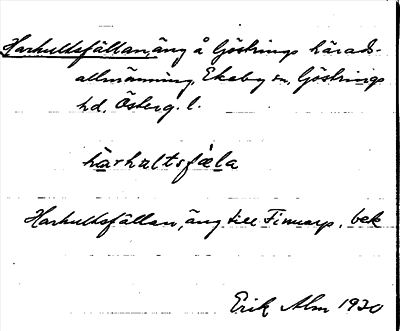 Harhultsfällan, äng å Göstrings härads-
allmänning, Ekeby sn, Göstrings
hd, Österg. l.
harhultsfäla
Harhultsfällan, äng till Finnarp, bek
Erik Alm 1930